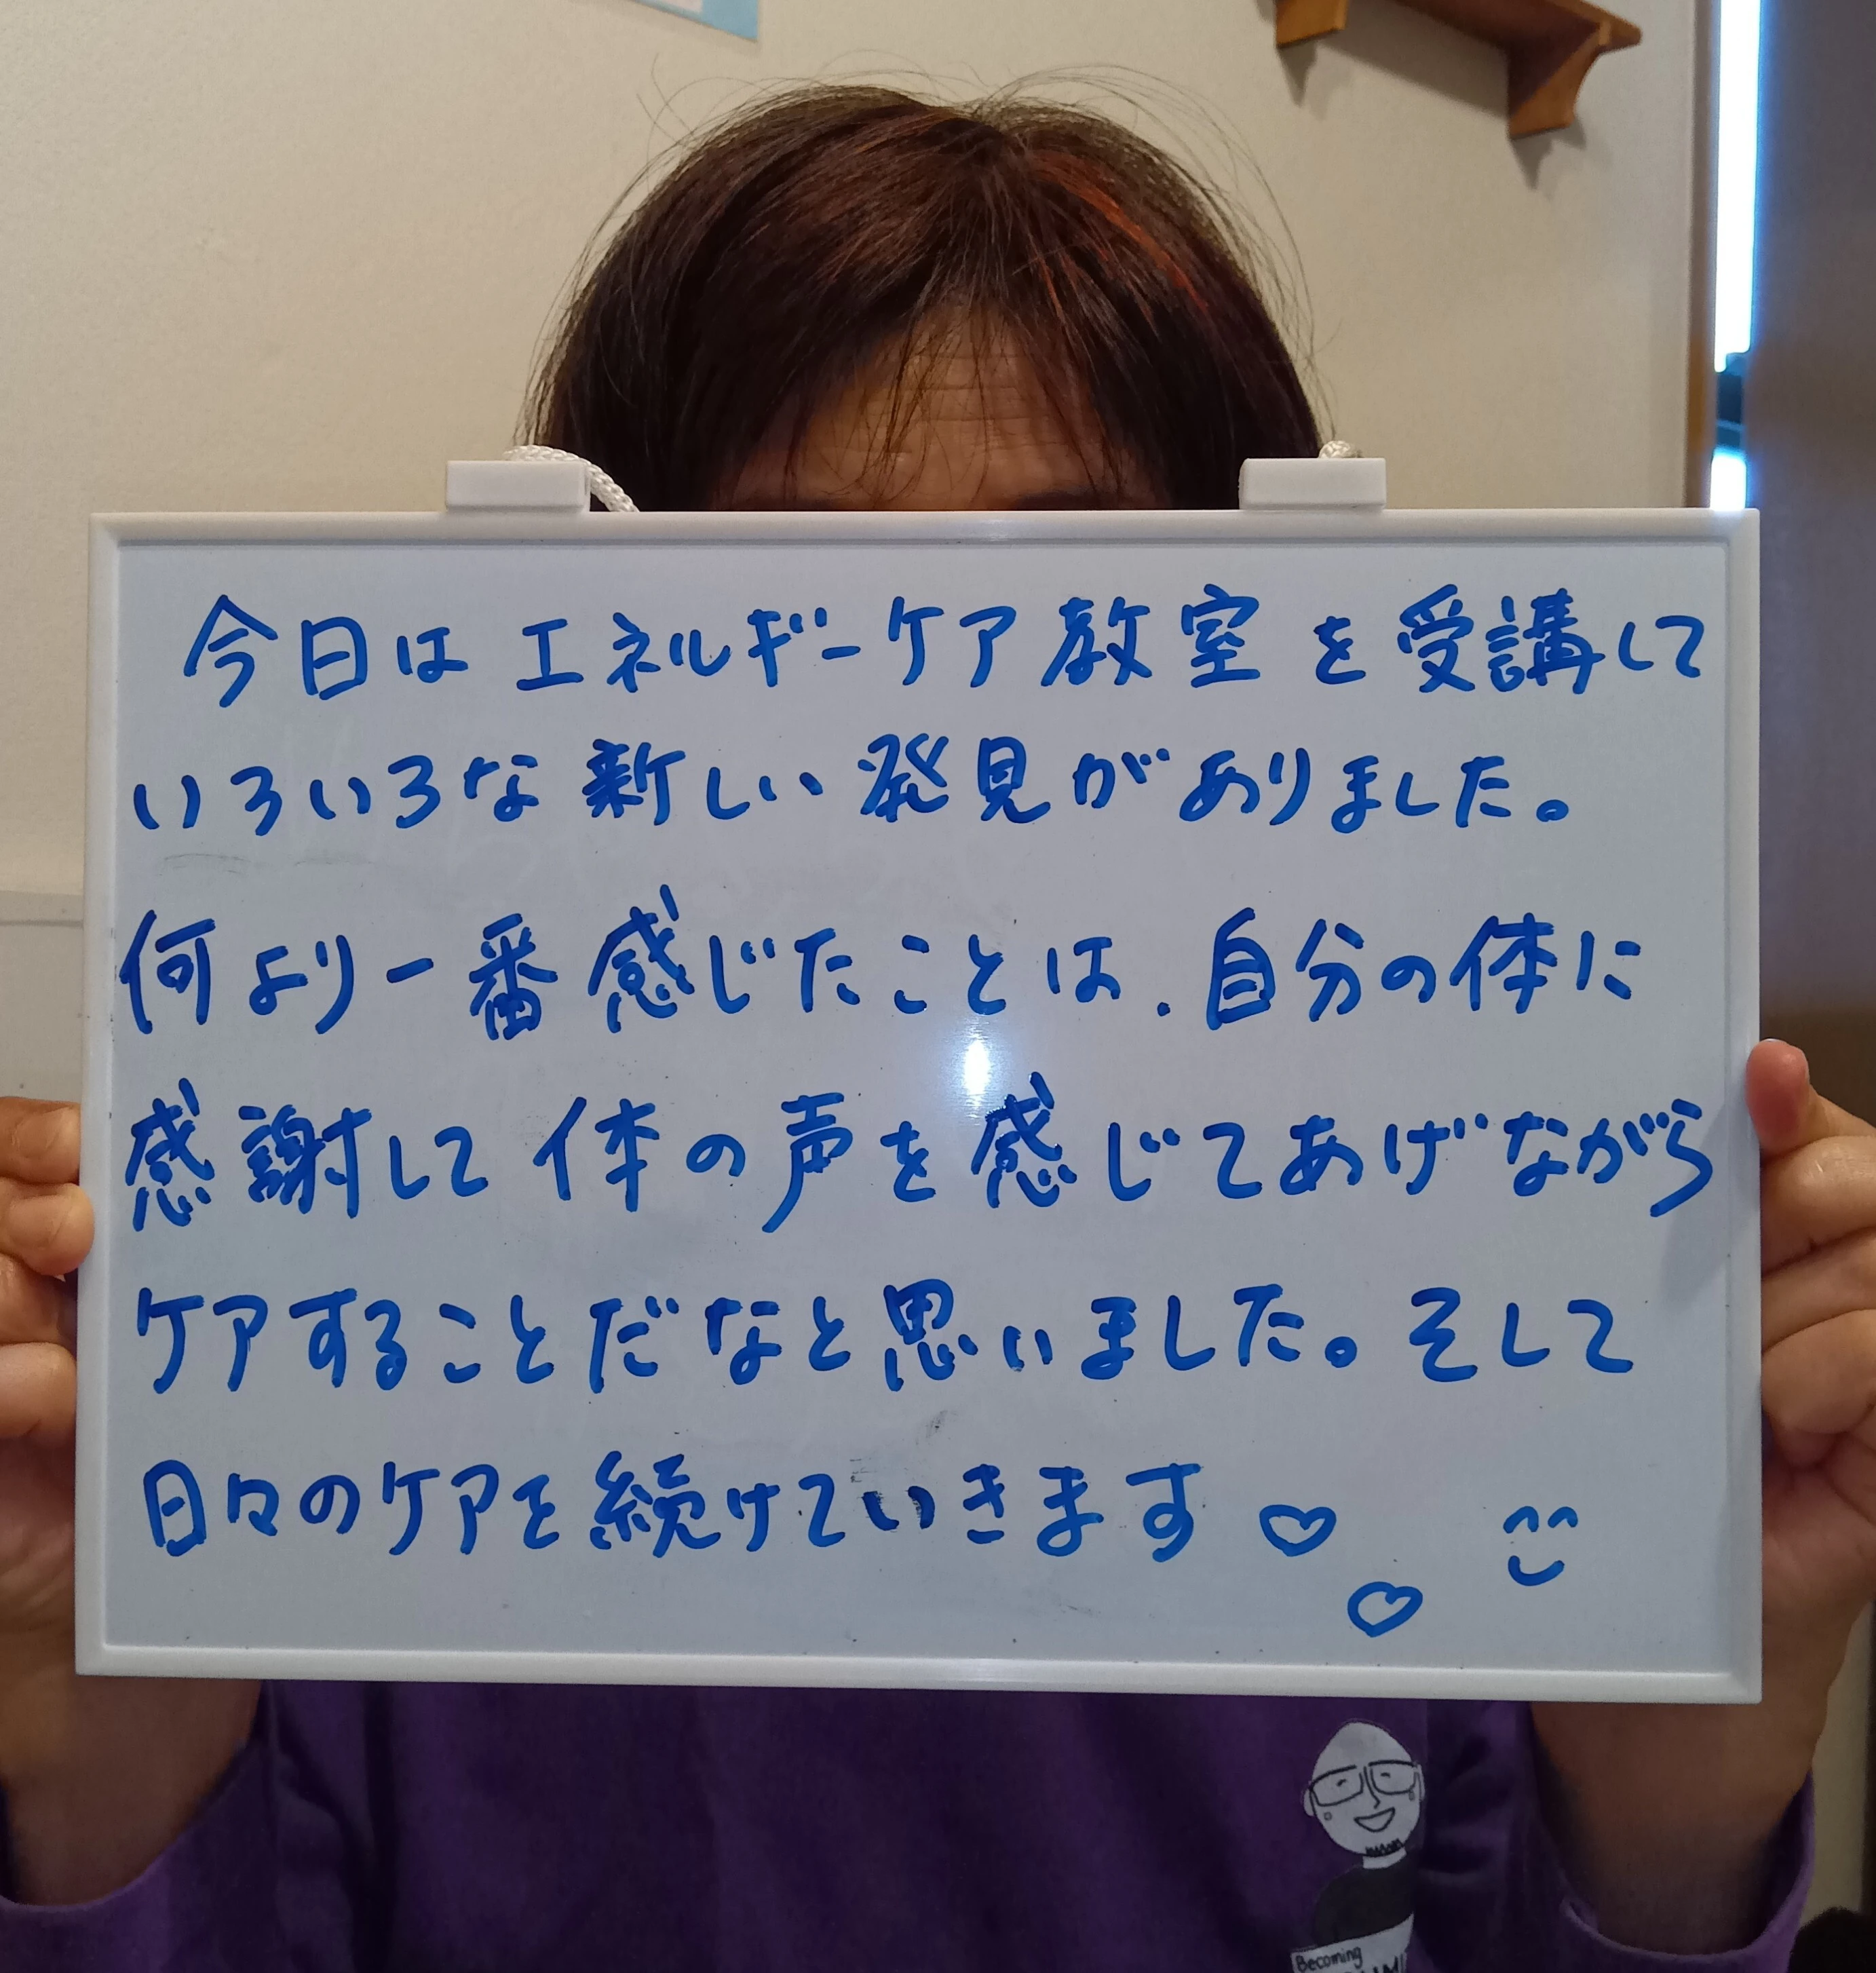 今日はエネルギーケア教室を受講して
いろいろな新しい発見がありました。
何より一番感じたことは、自分の体に
感謝して体の声を感じてあげながら
ケアすることだなと思いました。そして
日々のケアを続けていきます
Becoming